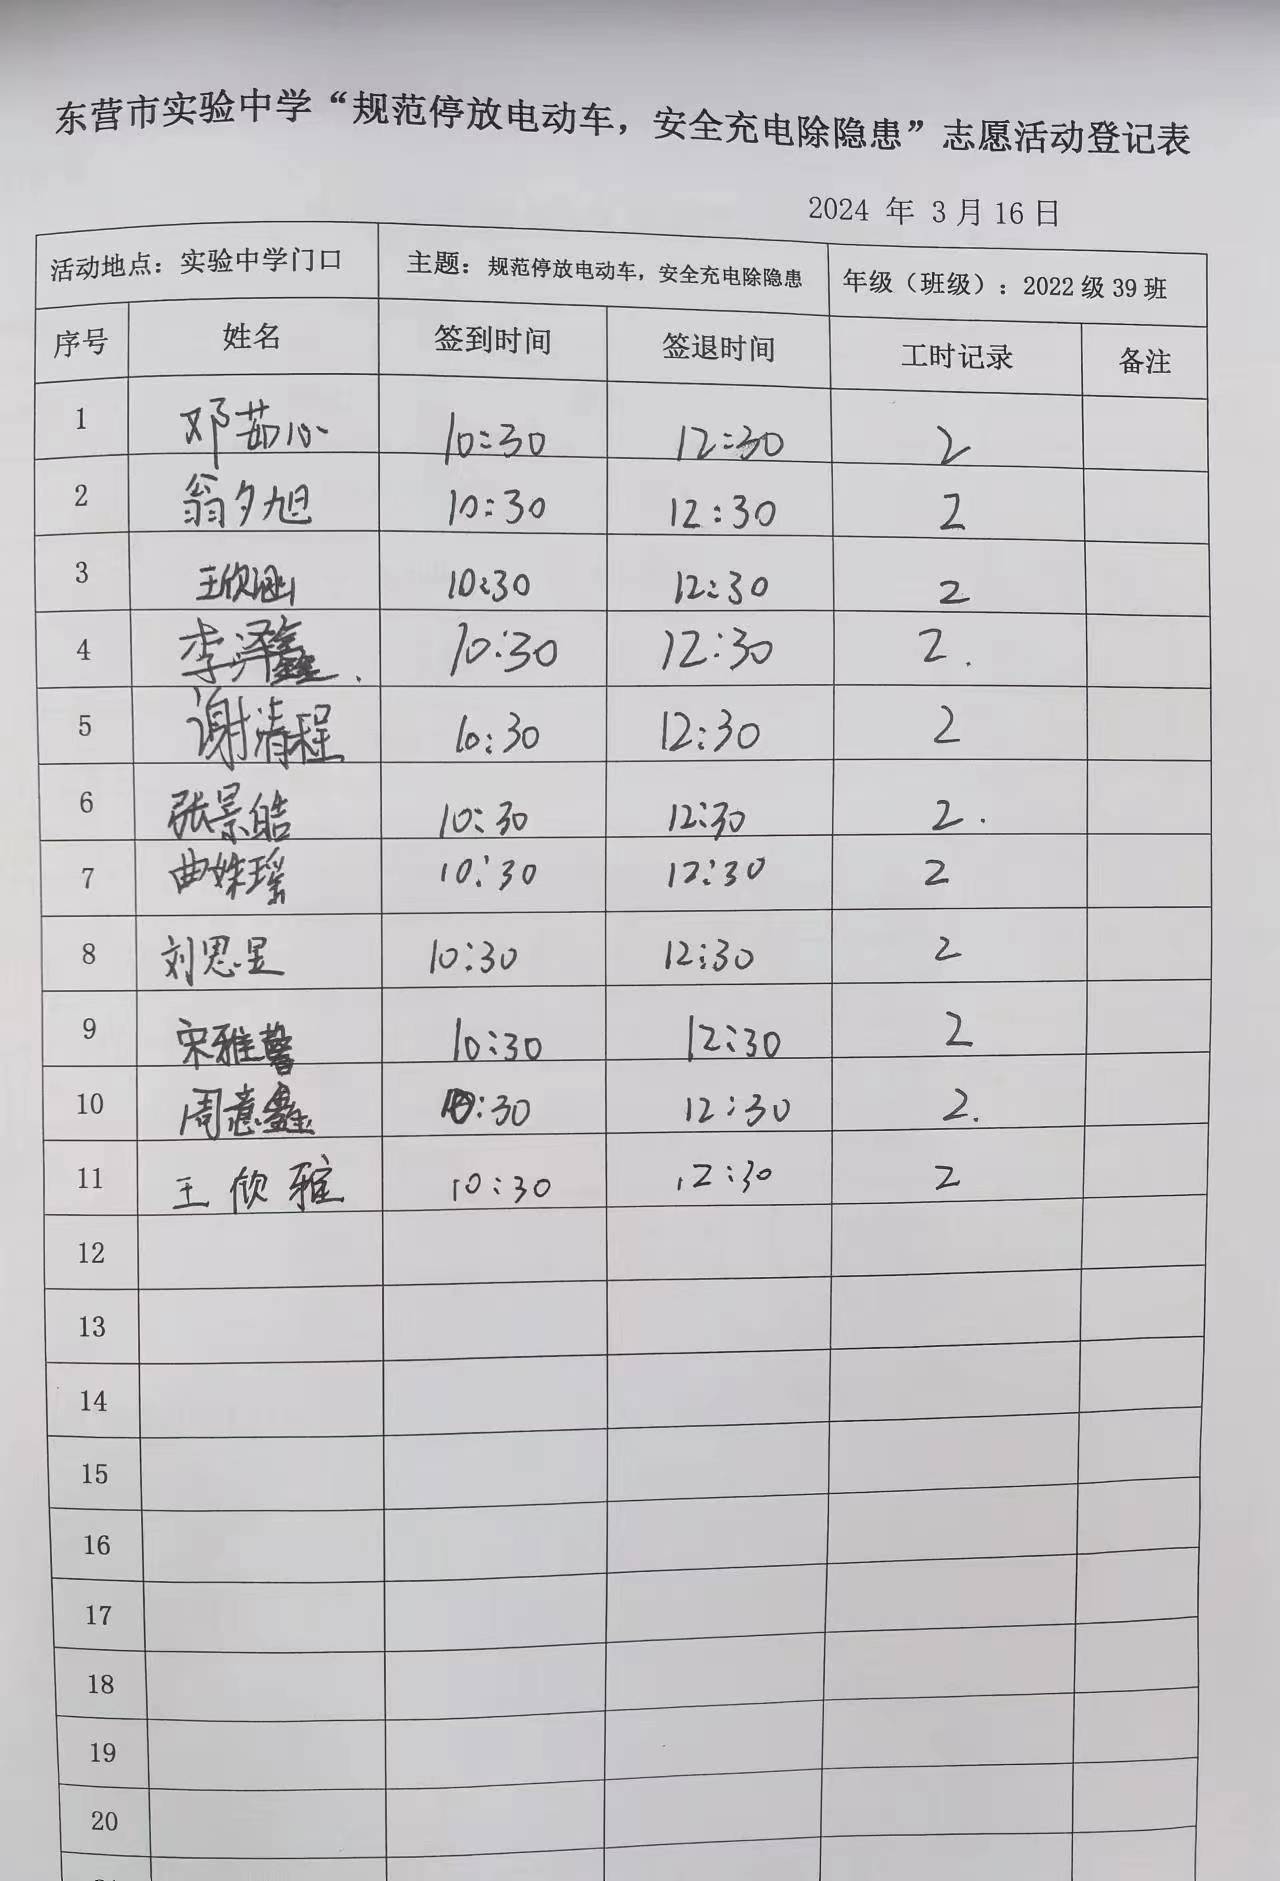 东营市实验中学“规范停放电动车，安全充电除隐患”志愿活动登记表
2024 年 3 月 16 日
活动地点：实验中学门口 主题：规范停放电动车，安全充电除隐患 年级（班级）：2022 级 39 班
序号 姓名 签到时间 签退时间 工时记录 备注
1 邓茹心 10:30 12:30 2
2 翁夕旭 10:30 12:30 2
3 王欣涵 10:30 12:30 2
4 李泽鑫. 10:30 12:30 2.
5 谢清程 10:30 12:30 2
6 张景皓 10:30 12:30 2.
7 曲姝瑶 10:30 12:30 2
8 刘思昱 10:30 12:30 2
9 宋雅馨 10:30 12:30 2
10 周意鑫 10:30 12:30 2.
11 王欣雅 10:30 12:30 2
12
13
14
15
16
17
18
19
20